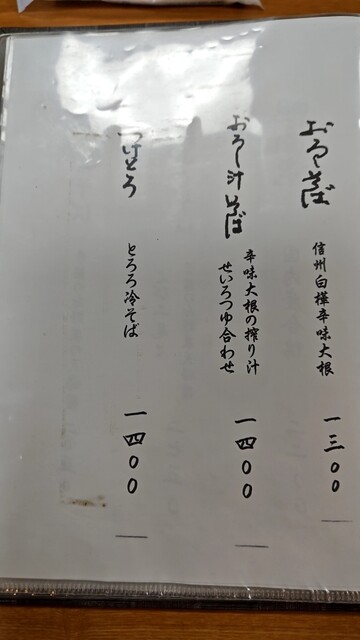 おろしそば
信州白樺辛味大根
一三〇〇
おろし汁そば
辛味大根の搾り汁
せいろつゆ合わせ
一四〇〇
つけとろ
とろろ冷そば
一四〇〇